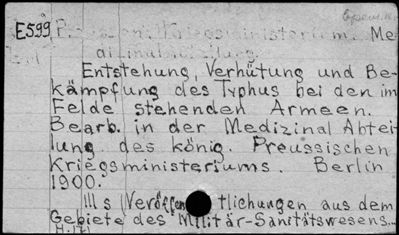 E599 Preussen. Kriegsministerium. Me-
dizinalabteilung.
Entstehung, Verhütung und Be-
kämpfung des Typhus bei den im
Felde stehenden Armeen.
Bearb. in der Medizinal Abtei
lung des könig. Preussischen
Kriegsministeriums. Berlin
1900.
Ills (Veröffentlichungen aus dem
Gebiete des Militär-Sanitätswesens...
H. 17)